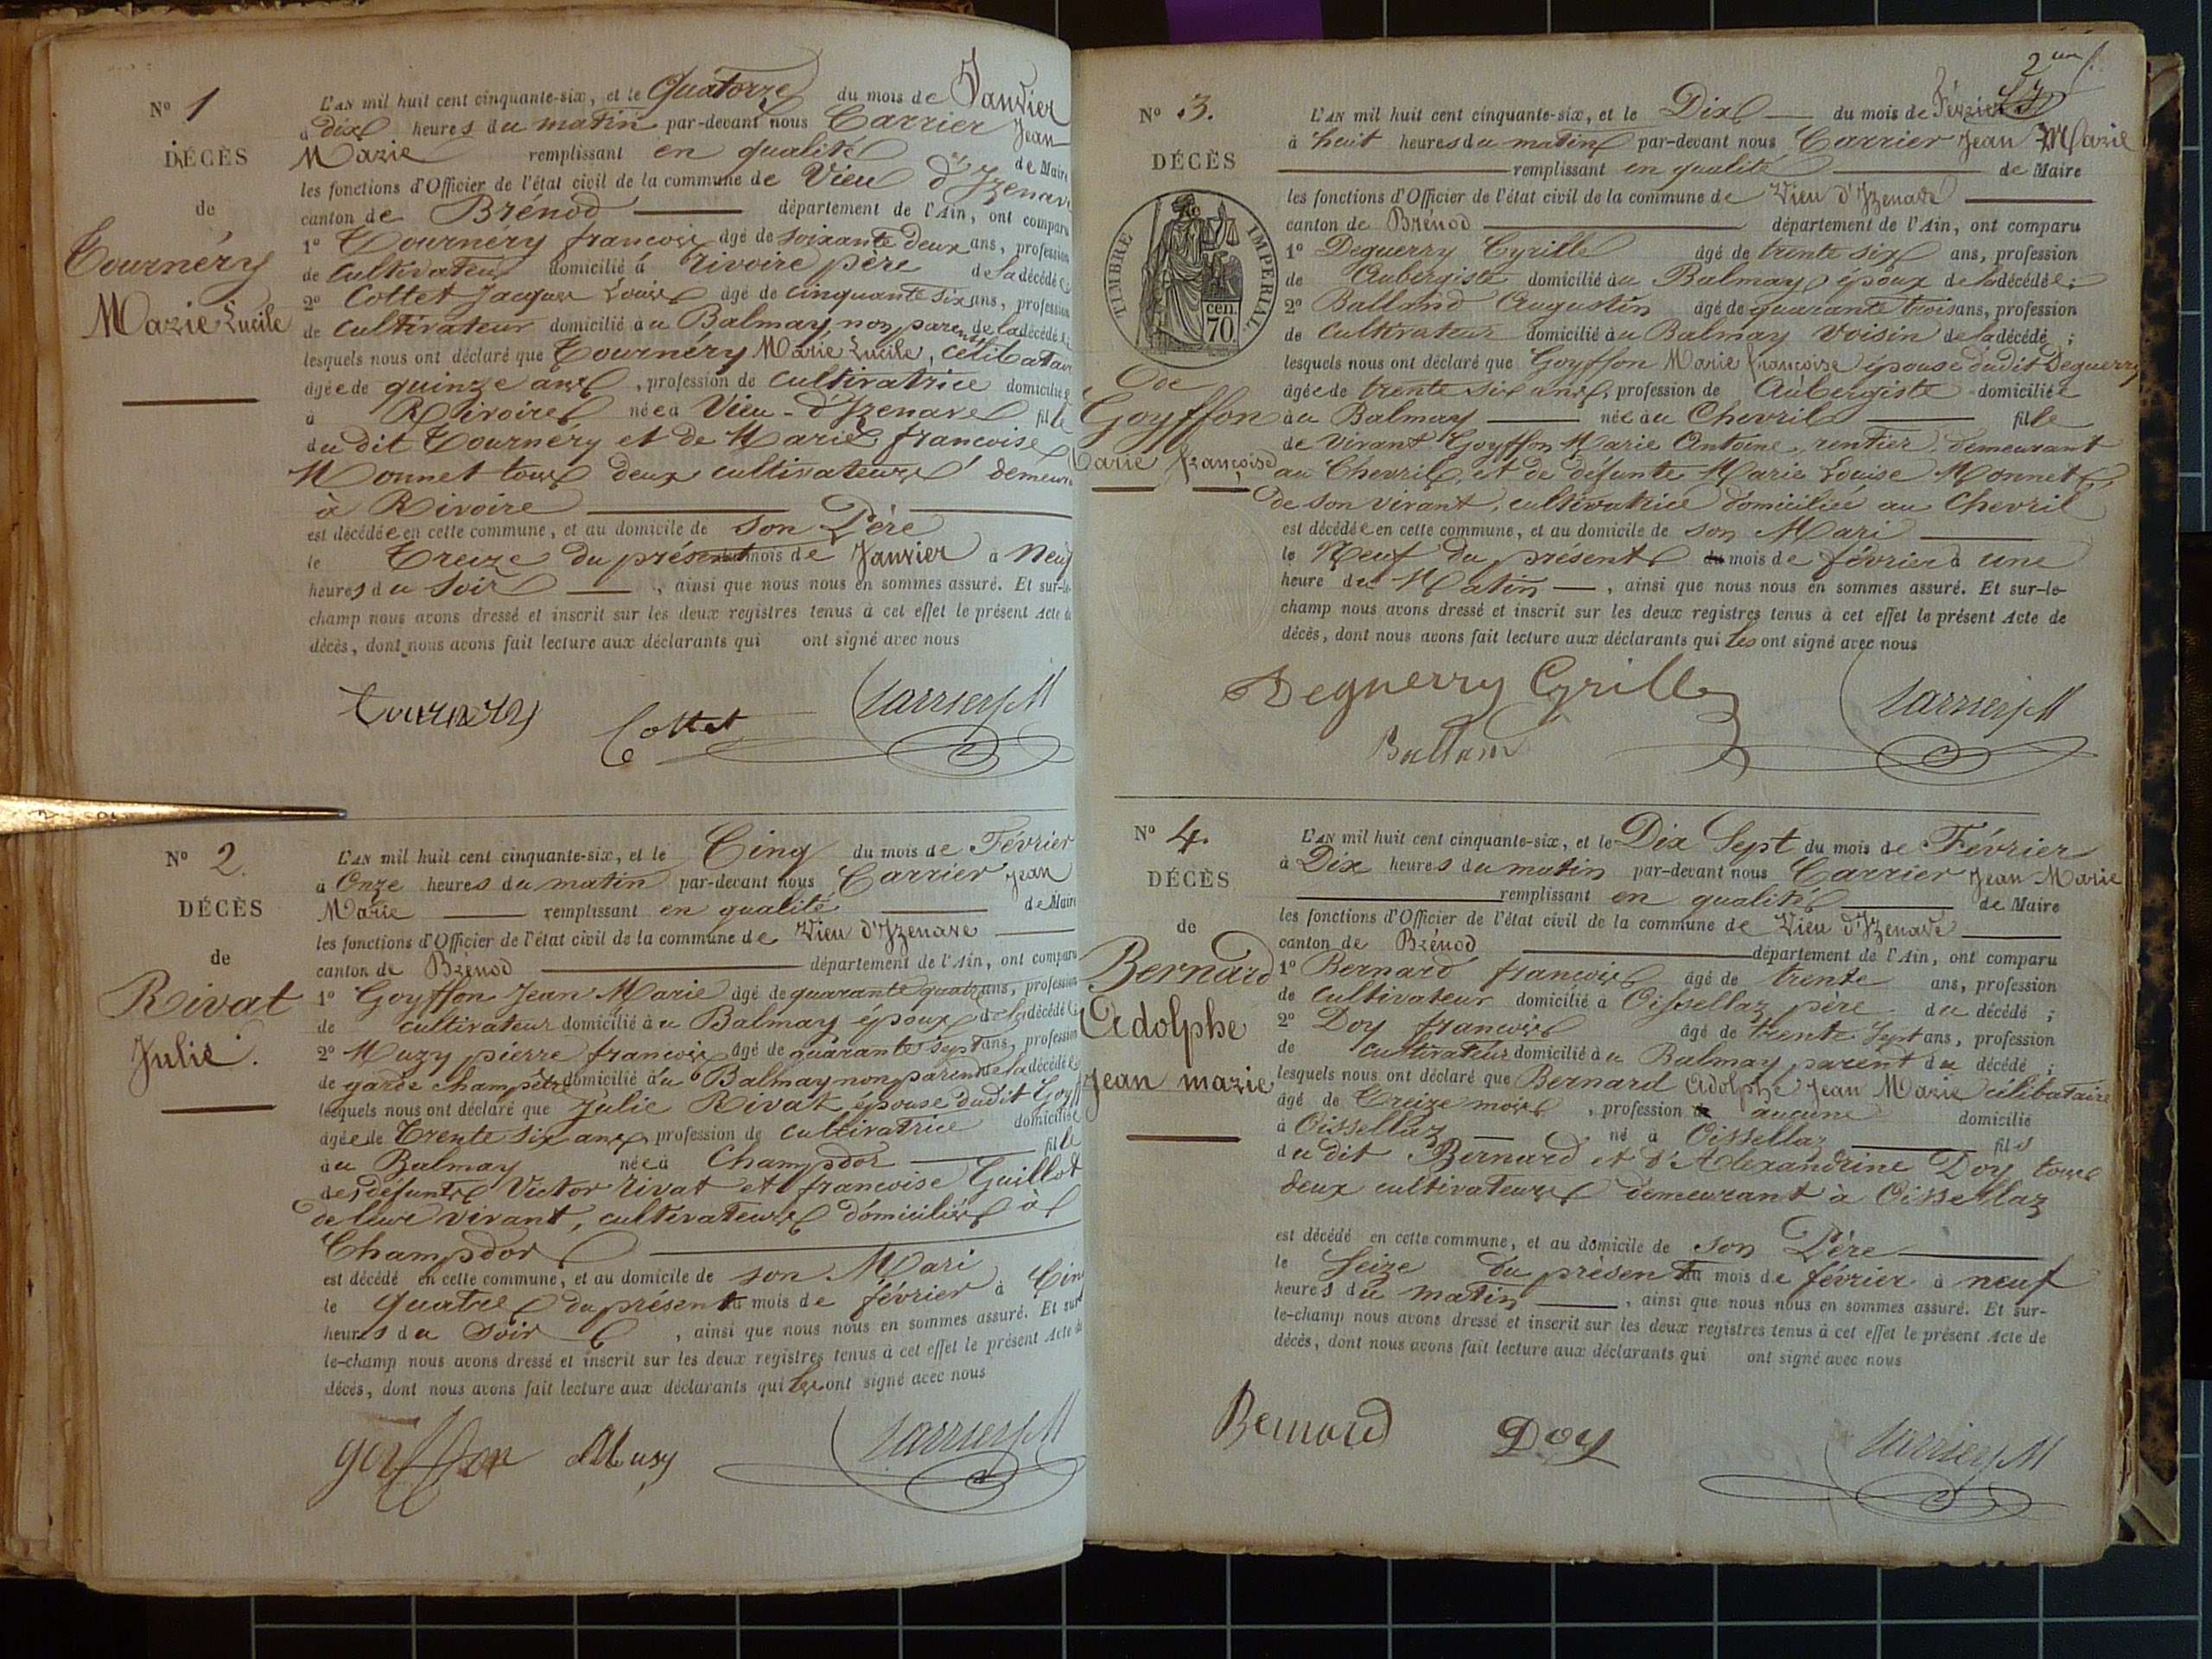 N° 1
DÉCÈS
de
Tournéry
Marie Lucile
L'AN mil huit cent cinquante-six, et le Quatorze du mois de Janvier
à dix heures du matin par-devant nous Carrier Jean
Marie remplissant en qualité de Maire
les fonctions d'Officier de l'état civil de la commune de Vieu d'Izenave
canton de Brénod département de l'Ain, ont comparu
1° Tournéry françois âgé de soixante deux ans, profession
de cultivateur domicilié à Rivoire père de la décédée
2° Cottet Jacques Louis âgé de cinquante six ans, profession
de cultivateur domicilié au Balmay, non parent de la décédée
lesquels nous ont déclaré que Tournéry Marie Lucile, célibataire
âgée de quinze ans, profession de cultivatrice domiciliée
à Rivoire née à Vieu-d'Izenave fille
du dit Tournéry et de Marie françoise
Monnet tous deux cultivateurs demeurant
à Rivoire
est décédée en cette commune, et au domicile de son Père
le Treize du présent mois de Janvier à Neuf
heures du Soir, ainsi que nous nous en sommes assuré. Et sur-le-
champ nous avons dressé et inscrit sur les deux registres tenus à cet effet le présent Acte de
décès, dont nous avons fait lecture aux déclarants qui ont signé avec nous
Tournery Cottet Carrier JM
N° 2.
DÉCÈS
de
Rivat
Julie.
L'AN mil huit cent cinquante-six, et le Cinq du mois de Février
à Onze heures du matin par-devant nous Carrier Jean
Marie remplissant en qualité de Maire
les fonctions d'Officier de l'état civil de la commune de Vieu d'Izenave
canton de Brénod département de l'Ain, ont comparu
1° Goyffon Jean Marie âgé de quarante quatre ans, profession
de cultivateur domicilié au Balmay époux de la décédée
2° Muzy pierre françois âgé de quarante sept ans, profession
de garde champêtre domicilié au Balmay non parent de la décédée
lesquels nous ont déclaré que Julie Rivat épouse dudit Goyff
âgée de Trente six ans, profession de cultivatrice domiciliée
au Balmay née à Champdor fille
des défunts Victor Rivat et françoise Guillot
de leur vivant, cultivateurs domiciliés à
Champdor
est décédé en cette commune, et au domicile de son Mari
le quatre du présent du mois de février à Cinq
heures du Soir, ainsi que nous nous en sommes assuré. Et sur
le-champ nous avons dressé et inscrit sur les deux registres tenus à cet effet le présent Acte de
décès, dont nous avons fait lecture aux déclarants qui les ont signé avec nous
goiffon Musy Carrier JM
N° 3.
DÉCÈS
TIMBRE IMPERIAL
cen.
70.
De
Goyffon
Marie françoise
L'AN mil huit cent cinquante-six, et le Dix du mois de Février
à huit heures du matin par-devant nous Carrier Jean Marie
remplissant en qualité de Maire
les fonctions d'Officier de l'état civil de la commune de Vieu d'Izenave
canton de Brénod département de l'Ain, ont comparu
1° Deguerry Cyrille âgé de trente six ans, profession
de Aubergiste domicilié au Balmay époux de la décédée;
2° Balland Augustin âgé de quarante trois ans, profession
de cultivateur domicilié au Balmay voisin de la décédé;
lesquels nous ont déclaré que Goyffon Marie françoise épouse dudit Deguerry
âgée de trente six ans, profession de Aubergiste domiciliée
au Balmay née au Chevril fille
de vivant Goyffon Marie Antoine, rentier, demeurant
au Chevril, et de défunte Marie Louise Monnet,
de son vivant, cultivatrice domiciliée au Chevril
est décédée en cette commune, et au domicile de son Mari
le Neuf du présent du mois de février à une
heure du Matin, ainsi que nous nous en sommes assuré. Et sur-le-
champ nous avons dressé et inscrit sur les deux registres tenus à cet effet le présent Acte de
décès, dont nous avons fait lecture aux déclarants qui les ont signé avec nous
Deguerry Cyrille Carrier JM
Balland
N° 4.
DÉCÈS
de
Bernard
Adolphe
Jean marie
L'AN mil huit cent cinquante-six, et le Dix Sept du mois de Février
à Dix heures du matin par-devant nous Carrier Jean Marie
remplissant en qualité de Maire
les fonctions d'Officier de l'état civil de la commune de Vieu d'Izenave
canton de Brénod département de l'Ain, ont comparu
1° Bernard françois âgé de trente ans, profession
de cultivateur domicilié à Oissellaz père du décédé;
2° Doy françois âgé de trente Sept ans, profession
de cultivateur domicilié au Balmay, parent du décédé;
lesquels nous ont déclaré que Bernard Adolphe Jean Marie célibataire
âgé de Treize mois, profession de aucune domicilié
à Oissellaz né à Oissellaz fils
du dit Bernard et d'Alexandrine Doy tous
deux cultivateurs demeurant à Oissellaz
est décédé en cette commune, et au domicile de son Père
le Seize du présent du mois de février à neuf
heures du matin, ainsi que nous nous en sommes assuré. Et sur-
le-champ nous avons dressé et inscrit sur les deux registres tenus à cet effet le présent Acte de
décès, dont nous avons fait lecture aux déclarants qui ont signé avec nous
Bernard Doy Carrier JM